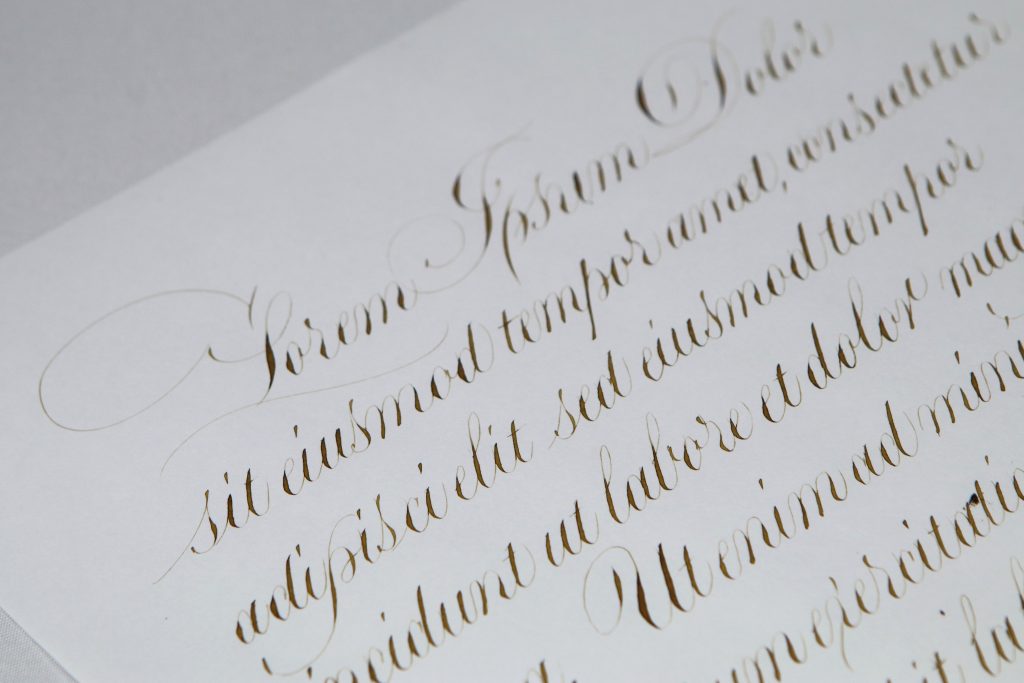 Lorem Ipsum Dolor
sit eiusmod tempor amet, consectetur
adipisci elit sed eiusmod tempor
incidunt ut labore et dolor
Ut enim ad
exercitatio